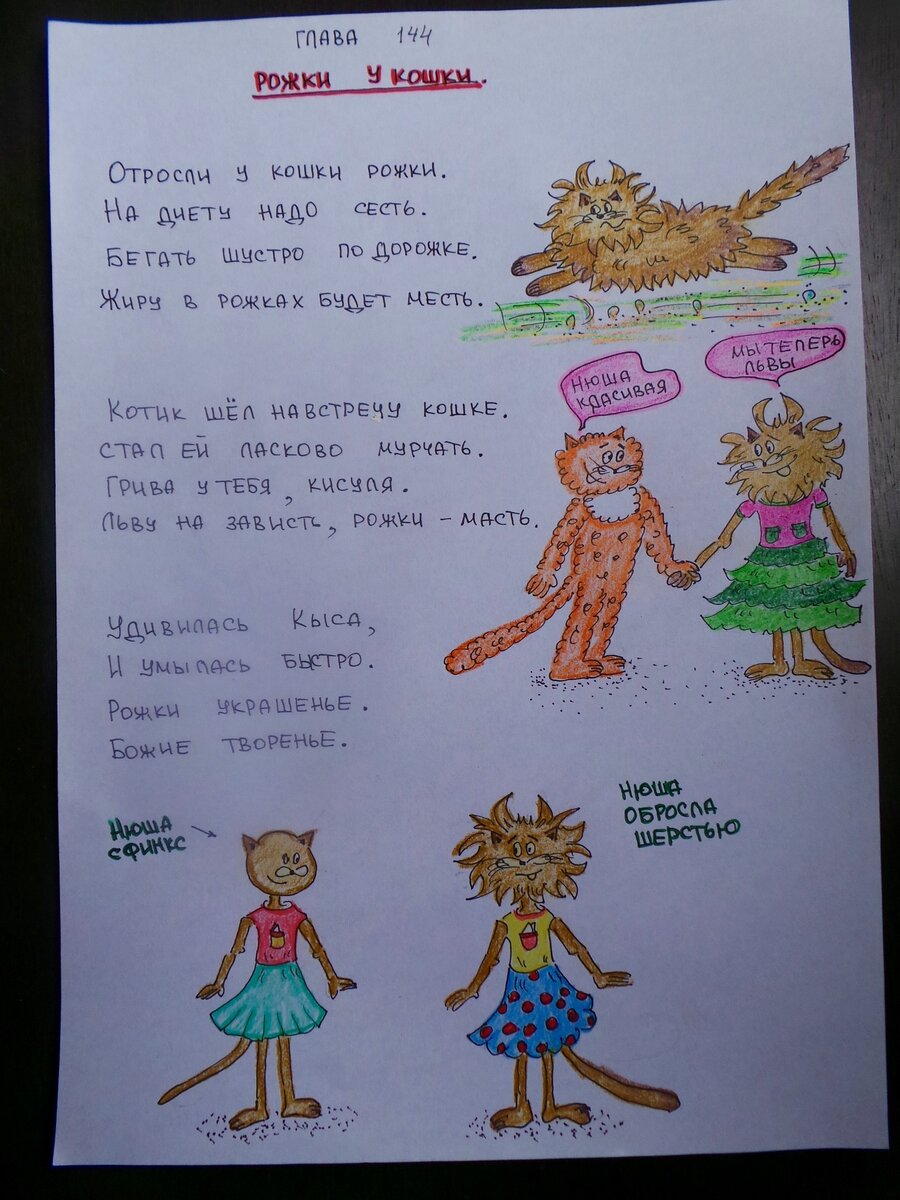 ГЛАВА 144
РОЖКИ У КОШКИ.
ОТРОСЛИ У КОШКИ РОЖКИ.
НА ДИЕТУ НАДО СЕСТЬ.
БЕГАТЬ ШУСТРО ПО ДОРОЖКЕ.
ЖИРУ В РОЖКАХ БУДЕТ МЕСТЬ.
НЮША
КРАСИВАЯ
МЫ ТЕПЕРЬ
ЛЬВЫ
КОТИК ШЁЛ НАВСТРЕЧУ КОШКЕ.
СТАЛ ЕЙ ЛАСКОВО МУРЧАТЬ.
ГРИВА У ТЕБЯ, КИСУЛЯ.
ЛЬВУ НА ЗАВИСТЬ, РОЖКИ - МАСТЬ.
УДИВИЛАСЬ КЫСА,
И УМЫЛАСЬ БЫСТРО.
РОЖКИ УКРАШЕНЬЕ.
БОЖИЕ ТВОРЕНЬЕ.
НЮША
СФИНКС
НЮША
ОБРОСЛА
ШЕРСТЬЮ